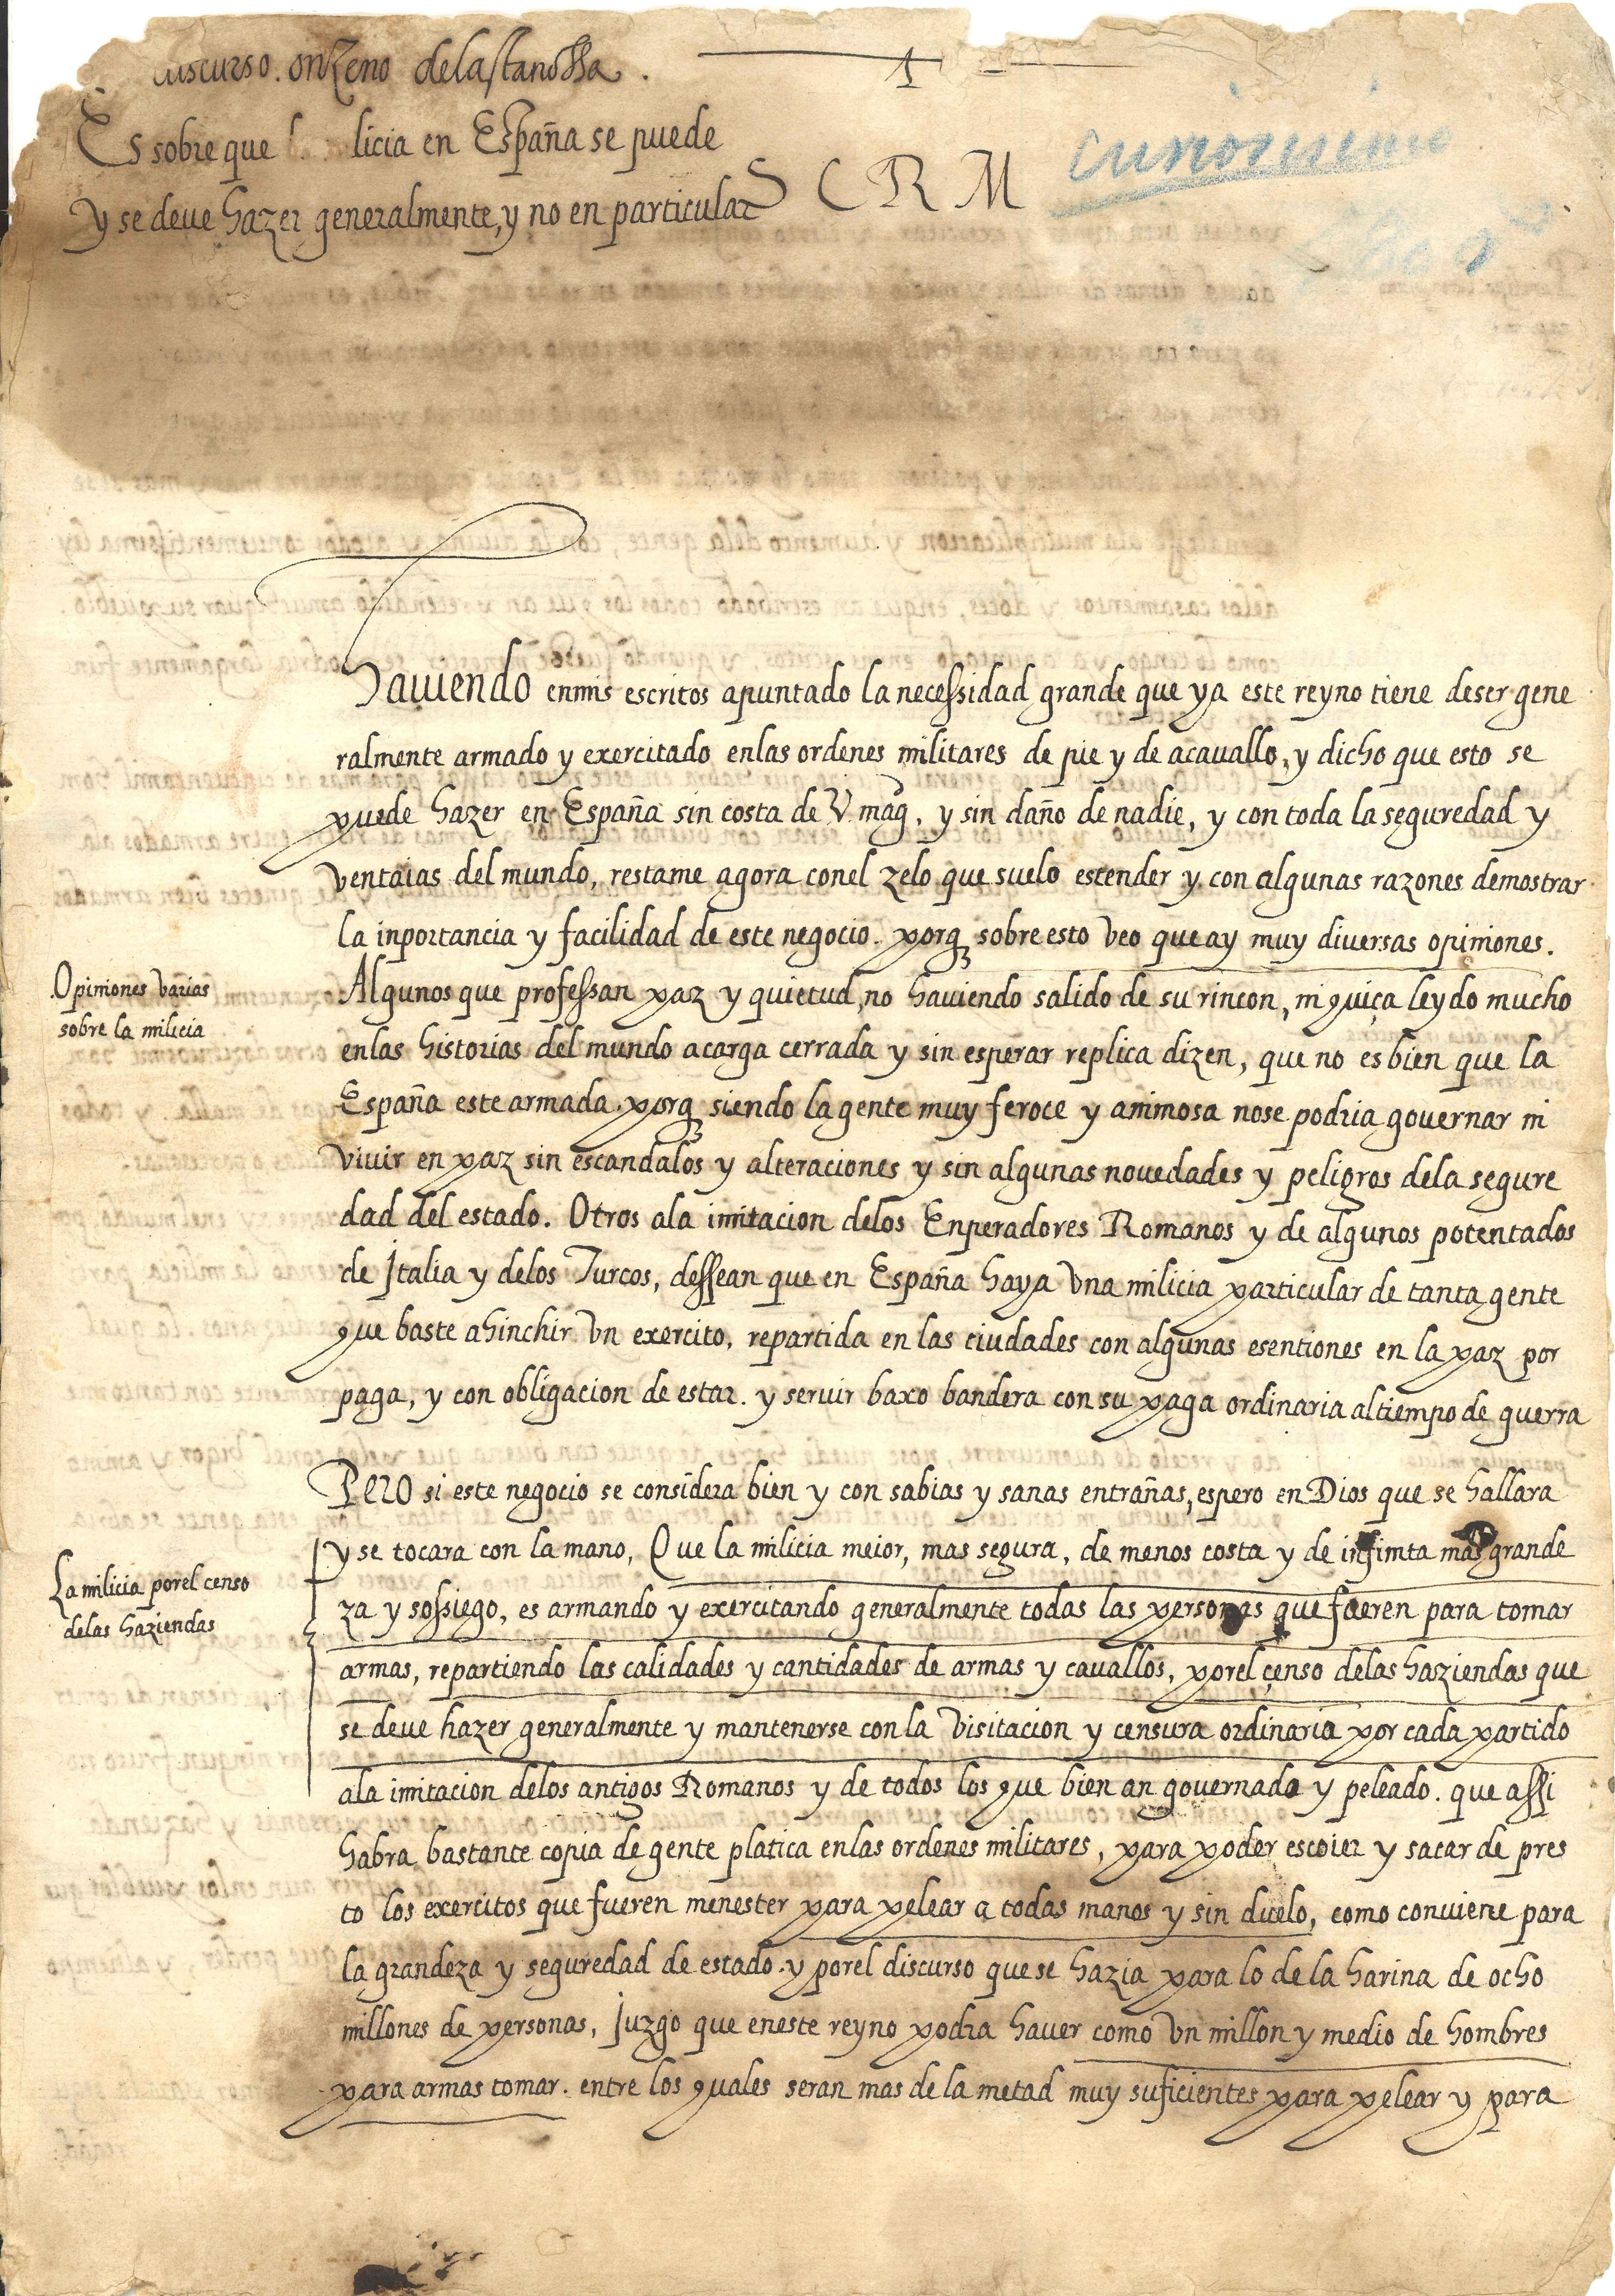 discurso. onzeno de
Es sobre que licia en España se puede
y se deve hazer generalmente, y no en particular
1
S C R M
Haviendo enmis escritos apuntado la necessidad grande que ya este reyno tiene deser gene
ralmente armado y exercitado enlas ordenes militares de pie y de acavallo, y dicho que esto se
puede hazer en España sin costa de V. mag, y sin daño de nadie, y con toda la seguredad y
ventaias del mundo, restame agora conel zelo que suelo estender y con algunas razones demostrar
la inportancia y facilidad de este negocio. porq sobre esto veo que ay muy diversas opiniones.
Opiniones varias
sobre la milicia
Algunos que professan paz y quietud, no haviendo salido de su rincon, ni quiça leydo mucho
enlas historias del mundo acarga cerrada y sin esperar replica dizen, que no es bien que la
España este armada, porq siendo la gente muy feroce y animosa nose podria governar ni
vivir en paz sin escandalos y alteraciones y sin algunas novedades y peligros dela segure
dad del estado. Otros ala imitacion delos Enperadores Romanos y de algunos potentados
de Italia y delos Turcos, dessean que en España haya una milicia particular de tanta gente
que baste ahinchir un exercito, repartida en las ciudades con algunas esentiones en la paz por
paga, y con obligacion de estar. y servir baxo bandera con su paga ordinaria al tiempo de guerra
Pero si este negocio se considera bien y con sabias y sanas entrañas, espero en Dios que se hallara
y se tocara con la mano, Que la milicia meior, mas segura, de menos costa y de infinita mas grande
La milicia porel censo
delas haziendas
za y sossiego, es armando y exercitando generalmente todas las personas que fueren para tomar
armas, repartiendo las calidades y cantidades de armas y cavallos, porel çenso delas haziendas que
se deve hazer generalmente y mantenerse con la visitacion y censura ordinaria por cada partido
ala imitacion delos antigos Romanos y de todos los que bien an governado y peleado. que assi
habra bastante copia de gente platica enlas ordenes militares, para poder escoier y sacar de pres
to los exercitos que fueren menester para pelear a todas manos y sin duelo, como conviene para
la grandeza y seguredad de estado. y porel discurso que se hazia para lo de la harina de ocho
millones de personas, Juzgo que eneste reyno podra haver como un millon y medio de hombres
para armas tomar. entre los quales seran mas de la metad muy suficientes para pelear y para